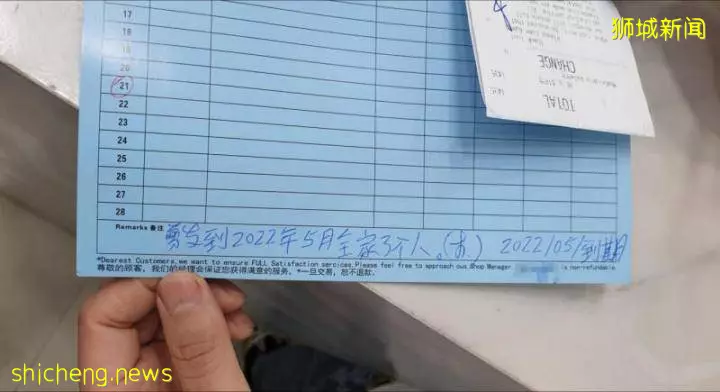 狮城新闻
17
18
19
20
21
22
23
24
25
26
27
28
CHANGE
TOTAL
Remarks 备注 剪发到2022年5月全家3个人。(木.) 2022/05/到期
*Dearest Customers,we want to ensure FULL Satisfaction services.Please feel free to approach our Shop Manager. is non-refundable.
尊敬的顾客, 我们的经理会保证您获得满意的服务。*一旦交易, 恕不退款.
shicheng.news